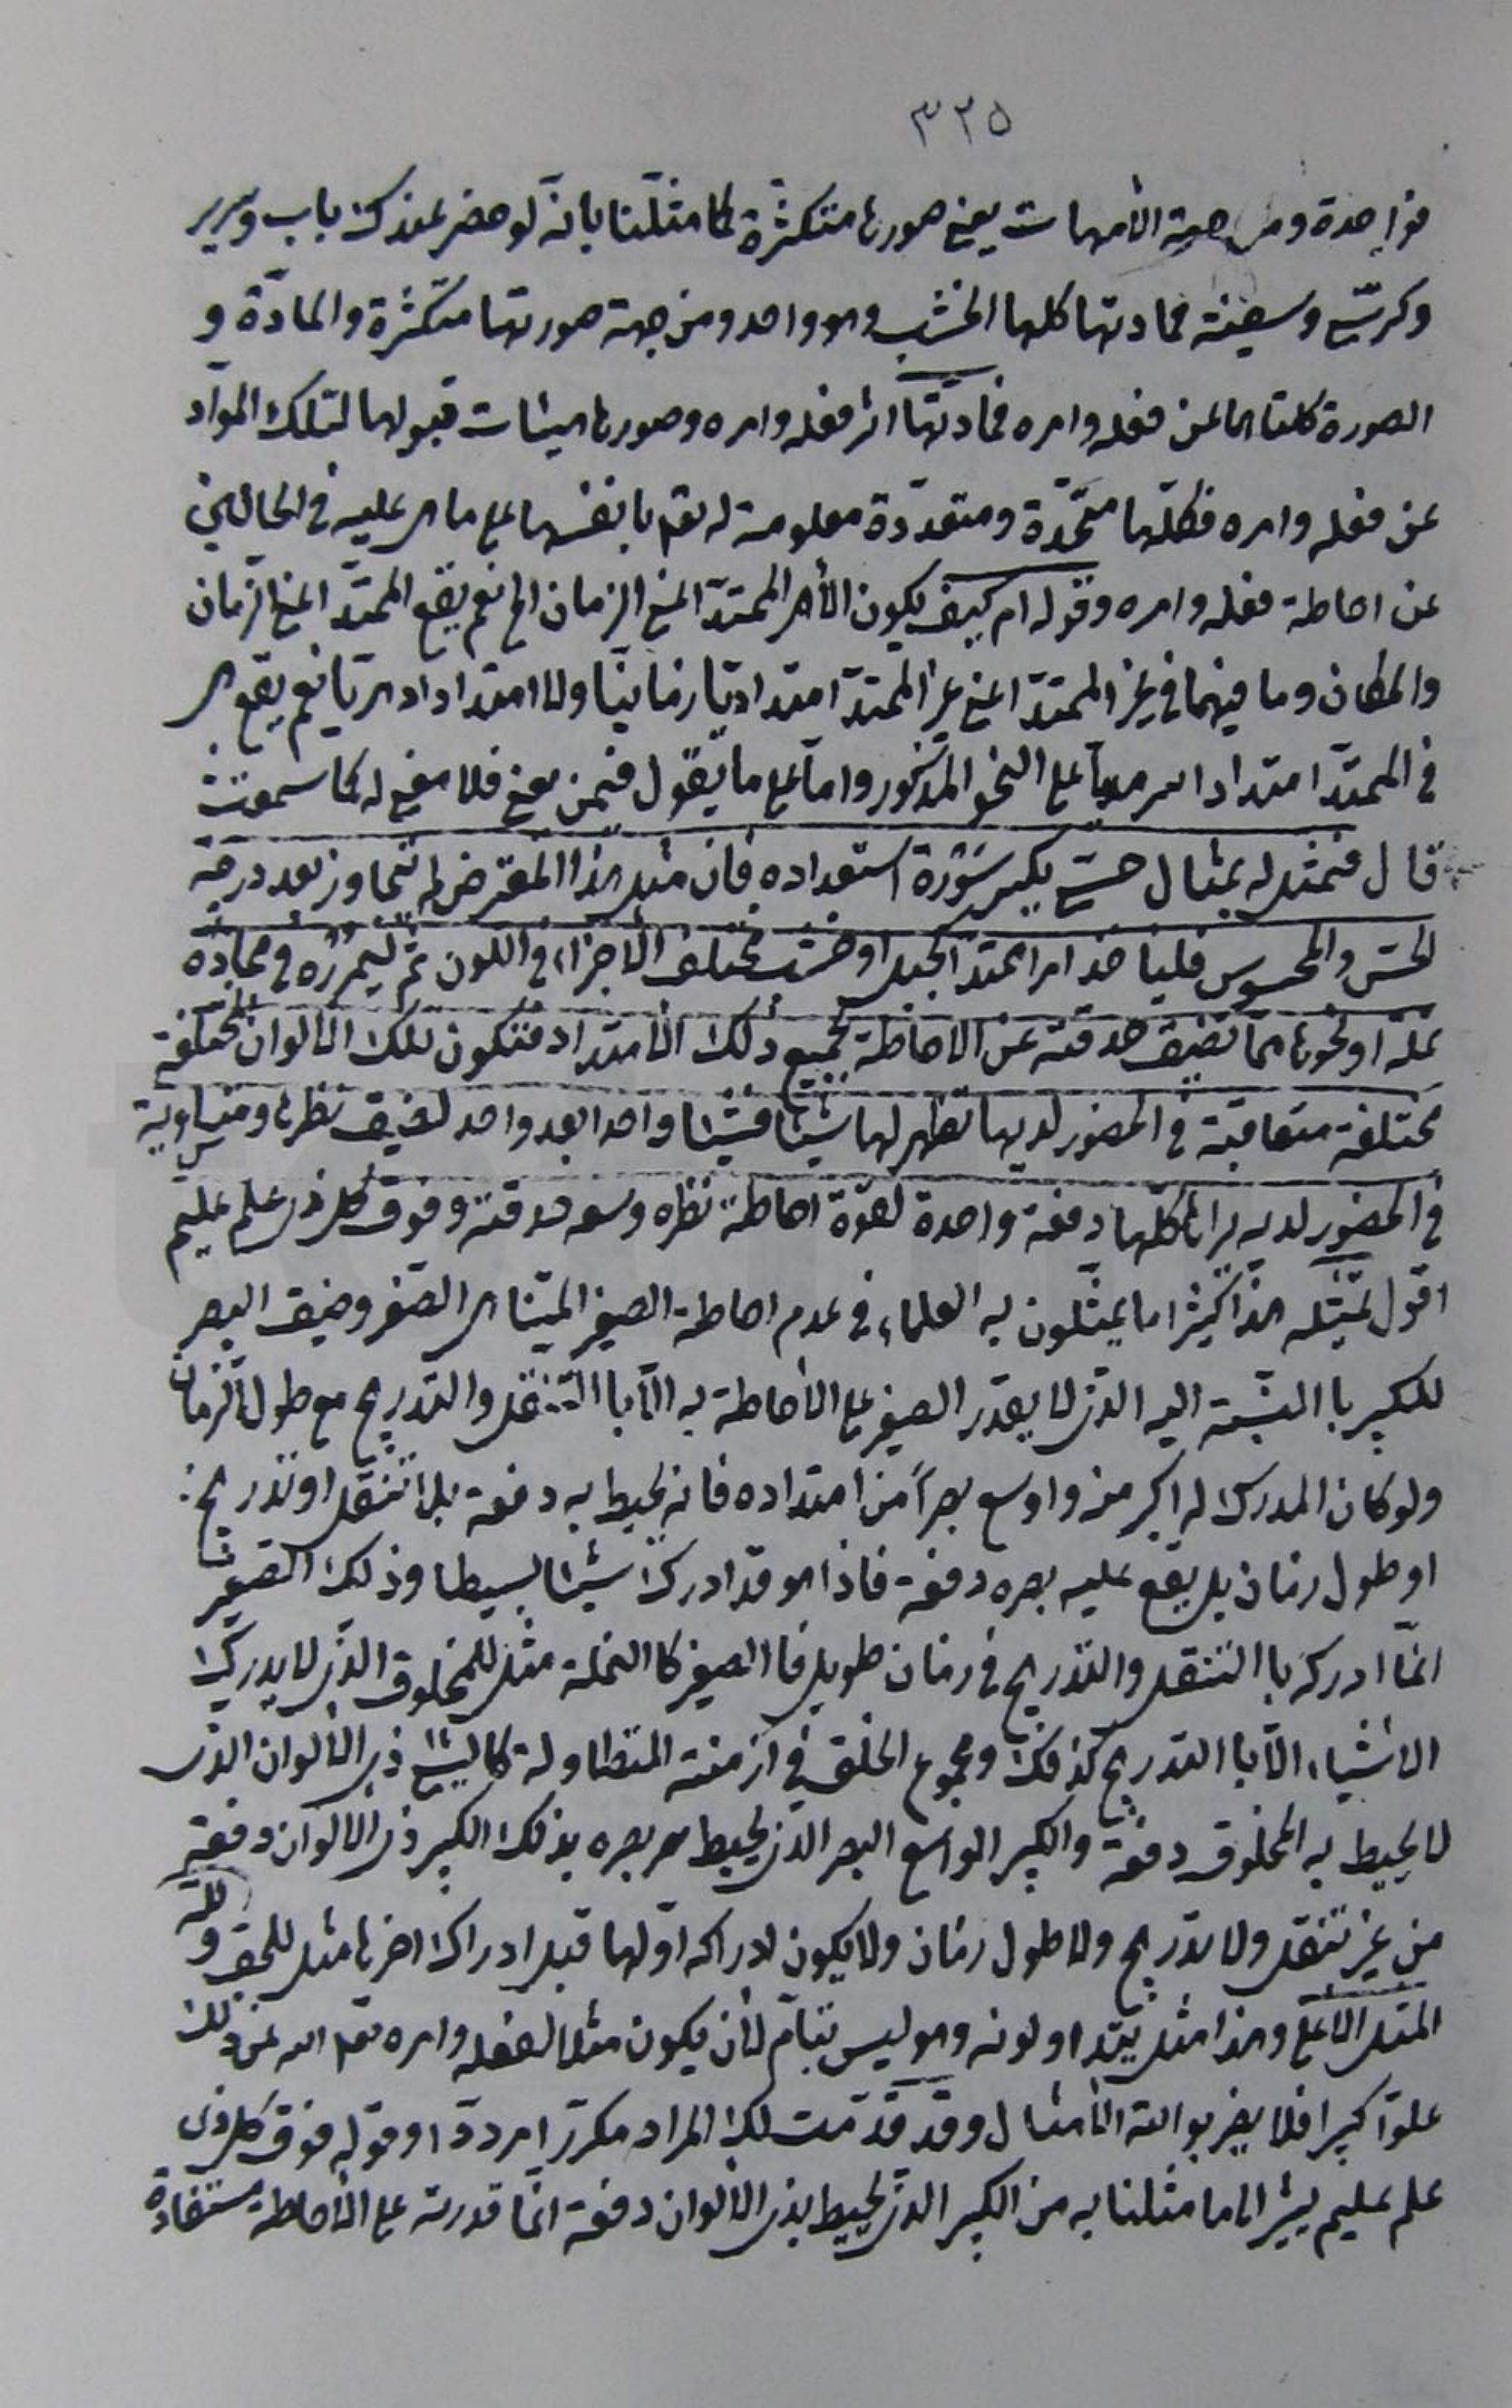 ٣٢٥
فواحدة ومن جهة الأمهات يعني صورها متكثرة كما مثلنا بانه لو حضر عندك باب وسرير
وكرسيّ وسفينة فمادتها كلها الخشب وهو واحد ومن جهة صورتها متكثرة والمادّة و
الصورة كلتاهما عن فعله وامره فمادتها اثر فعله وامره وصورها هيئات قبولها لتلك المواد
عن فعله وامره فكلّها متّحدة ومتعدّدة معلومة له تع بانفسها على ما هي عليه في الحالين
عن احاطة فعله وامره وقوله ام كيف يكون الأمر الممتدّ اعني الزمان الخ نعم يقع الممتدّ اعني الزمان
والمكان وما فيهما في غير الممتدّ اعني غير الممتدّ امتدادًا زمانيّا ولا امتدادا دهريّا نعم يقع هي
في الممتدّ امتدادا سرمديّا على النحو المذكور واما على ما يقول فمن يعني فلا معنى له كما سمعت
قال فنمثل له بمثال حسّي يكسر سَوْرة استعداده فان مثل هذا المعترض لم يتجاوز بعد درجة
الحسّ والمحسوس فليأخذ امرا ممتدّا كحبل او خشب مختلف الأجزاء في اللون ثمّ ليمرره في محاذاة
نملة او نحوها ممّا تضيق حدقته عن الاحاطة بجميع ذلك الامتداد فتكون تلك الالوان المختلفة
مختلفة متعاقبة في الحضور لديها تظهر لها شيئا فشيئا واحدا بعد واحد لضيق نظرها ومتساوية
في الحضور لديه يراها كلّها دفعة واحدة لقوّة احاطة نظره وسعة حدقته وفوق كل ذي علم عليم
اقول تمثيله هذا كثيرا ما يمثّلون به العلماء في عدم احاطة الصغير المتناهي الصغر وضيق البصر
للكبير با النسبة اليه الذي لا يقدر الصغير على الأحاطة به الّا با التنقل والتدريج مع طول الزمان
ولو كان المدرك له اكبر منه واوسع بصراً من امتداده فانه يحيط به دفعة بلا تنقل او تدريج
او طول زمان بل يقع عليه بصره دفعة فاذا هو قد ادرك شيئا بسيطا وذلك الصغير
انّما ادركه با التنقل والتدريج في زمان طويل فا الصغير كا النملة مثل للمخلوق الذي لا يدرك
الاشياء الّا با التدريج كذلك ومجموع الخلق في ازمنته المتطاولة كا لشيء ذي الألوان الذي
لا يحيط به المخلوق دفعة والكبير الواسع البصر الذي يحيط بصره بذلك الكبير ذي الالوان دفعة
من غير تنقل ولا تدريج ولا طول زمان ولا يكون لادراكه اوّلها قبل ادراك اخرها مثل للحق ولله
المثل الاعلى وهذا مثل يتداولونه وهو ليس بتامّ لأن يكون مثلا لفعله وامره تع الله عن ذلك
علوّا كبيرا فلا يضربوا لله الأمثال وقد قدّمت لك المراد مكرّرا مرددا وقوله فوق كل ذي
علم عليم يشير الى ما مثلنا به من الكبير الذي يحيط بذي الألوان دفعة انّما قدرته على الأحاطة مستفادة